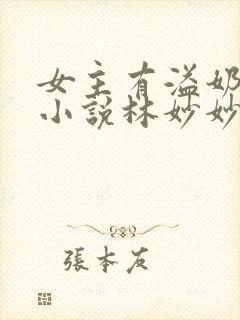 女主有溢奶
小説林妙妙
張本友